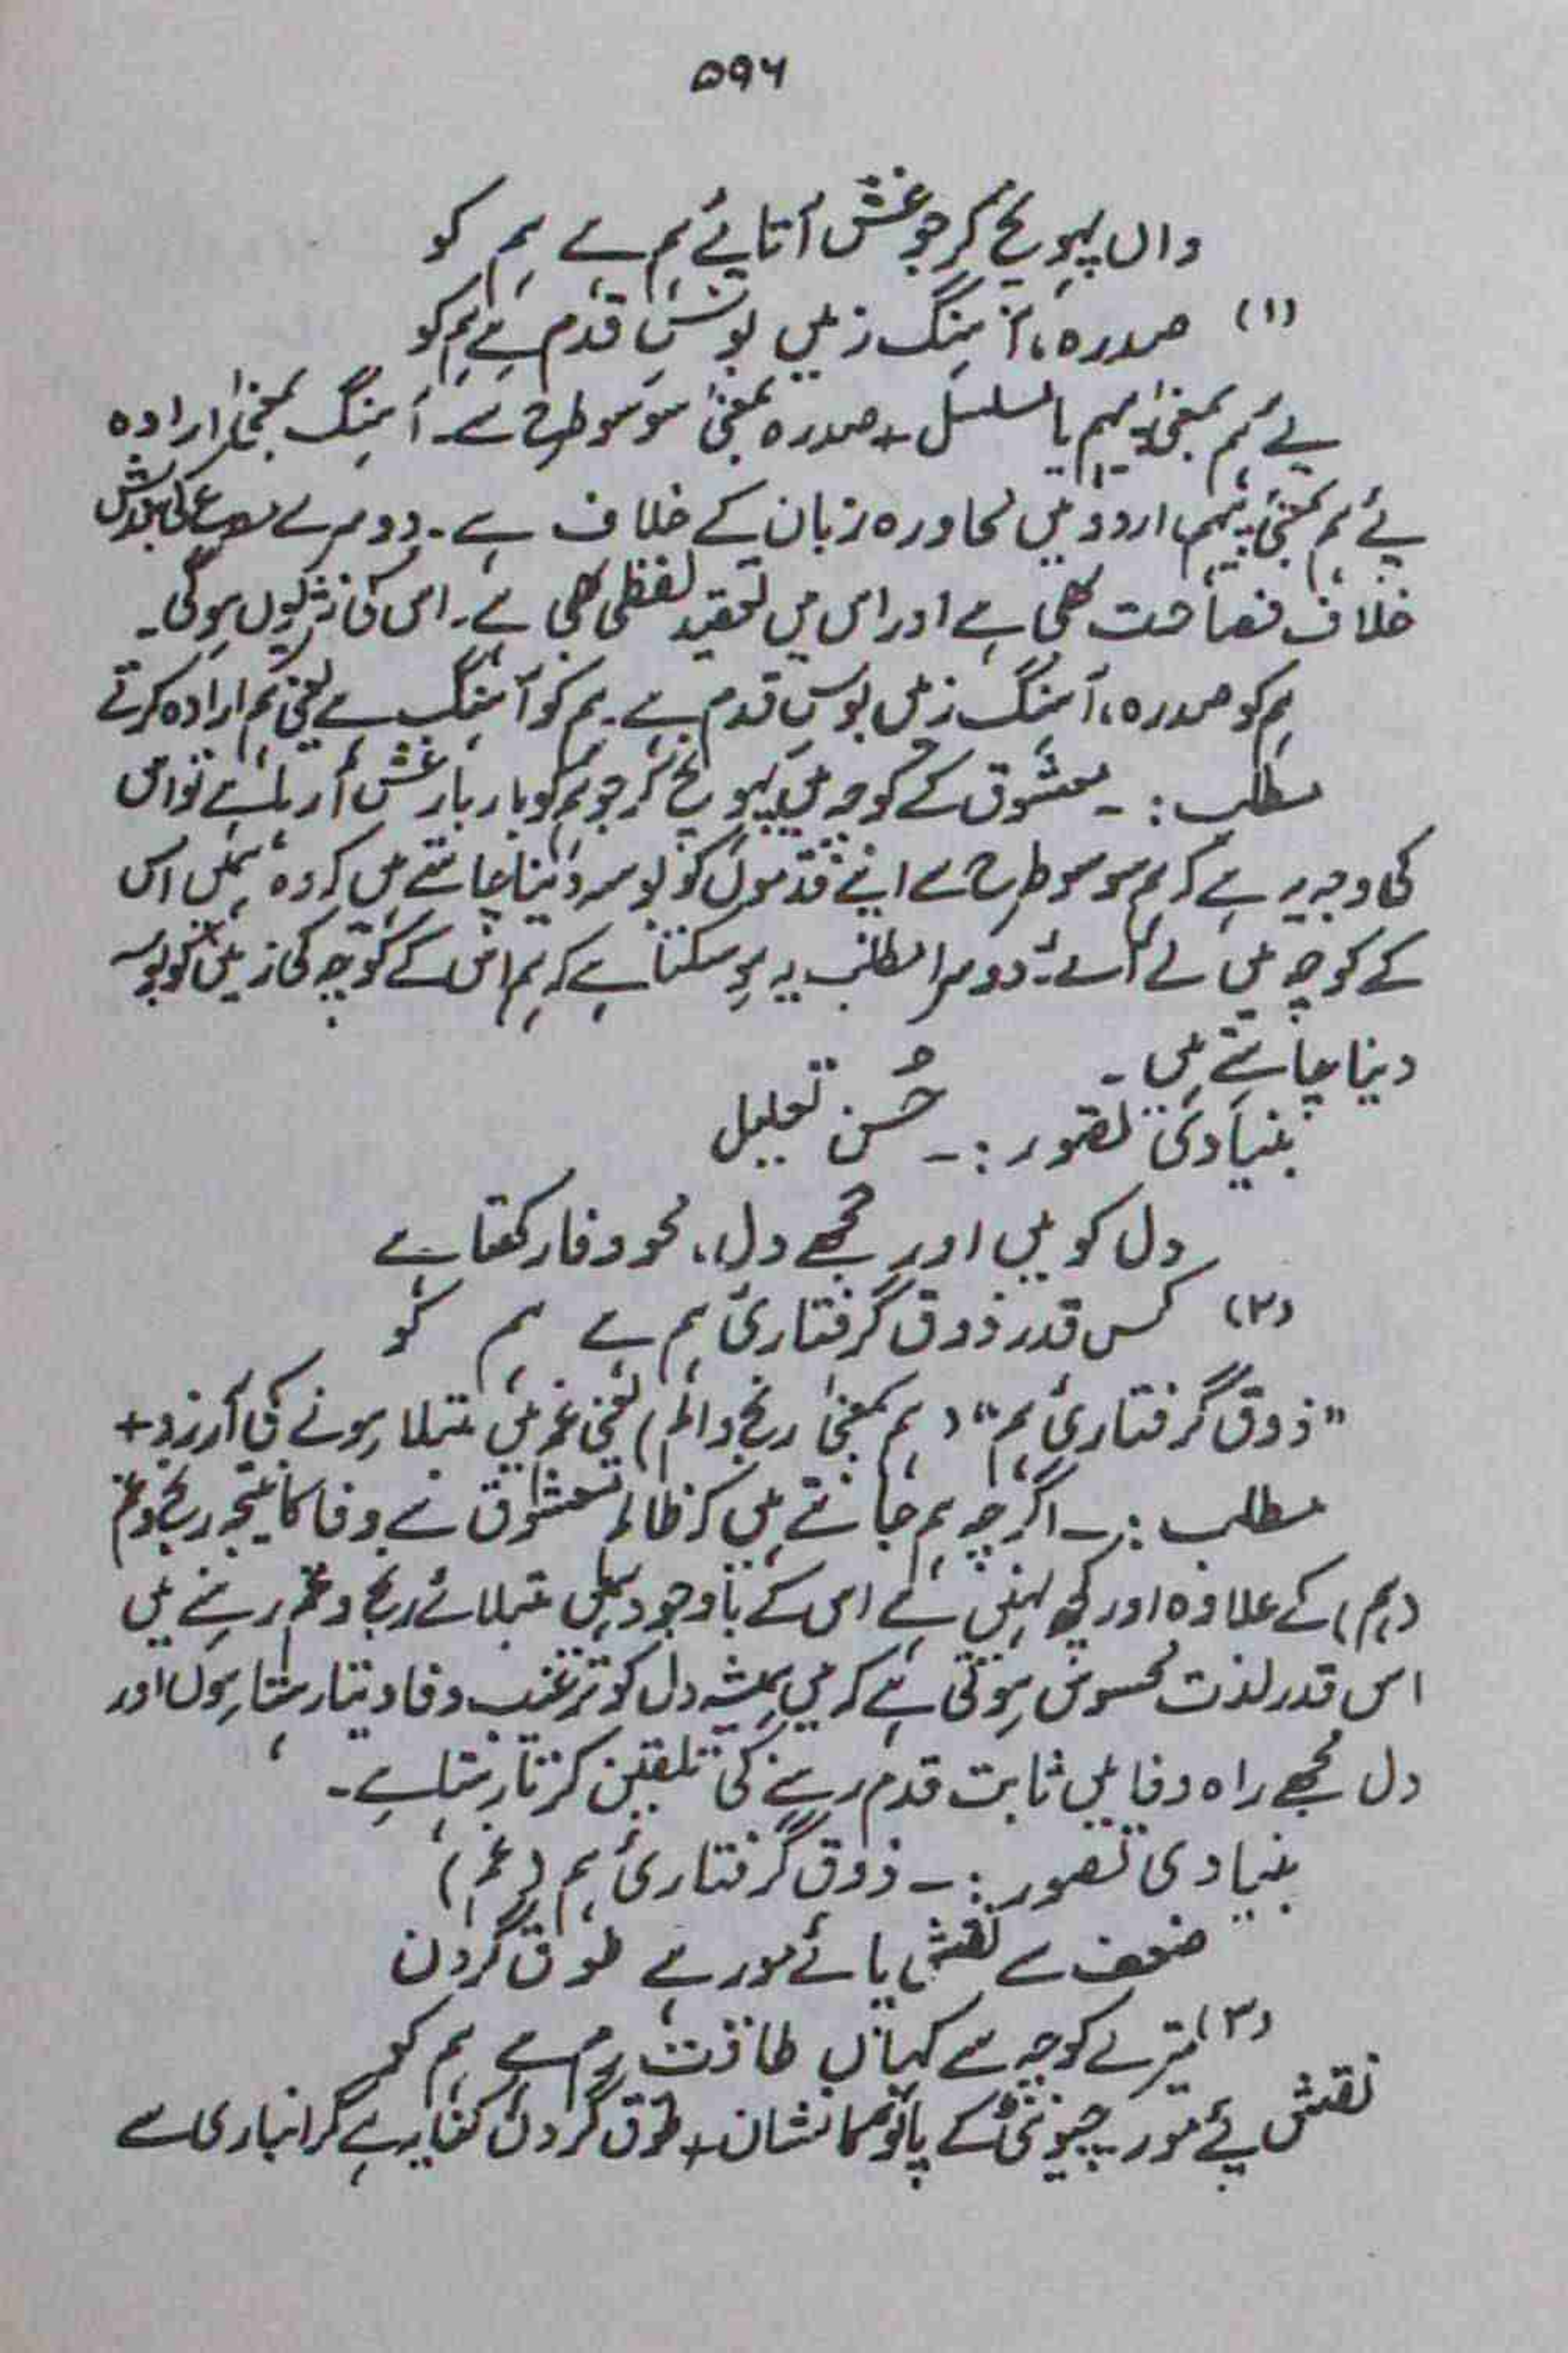 ۵۹۶
واں پہونچ کر جو غش آتا پئے ہم ہے ہم کو
(۱) صدرہ، آہنگ زمیں بوسِ قدم ہے ہم کو
پئے ہم بمعنیٰ پیہم یا مسلسل + صدرہ بمعنیٰ سو سو طرح سے۔ آہنگ بمعنیٰ ارادہ
پئے ہم بمعنیٰ پیہم، اردو میں محاورہ زبان کے خلاف ہے۔ دوسرے مصرع کی بندش
خلاف فصاحت بھی ہے اور اس میں تعقید لفظی بھی ہے۔ اس کی نثر یوں ہوگی۔
ہم کو صدرہ، آہنگ زمیں بوسِ قدم ہے۔ ہم کو آہنگ ہے یعنی ہم ارادہ کرتے
مطلب :۔ معشوق کے کوچہ میں پہونچ کر جو ہم کو بار بار غش آ رہا ہے تو اس
کی وجہ یہ ہے کہ ہم سو سو طرح سے اپنے قدموں کو بوسہ دینا چاہتے ہیں کہ وہ ہمیں اس
کے کوچہ میں لے آئے۔ دوسرا مطلب یہ ہو سکتا ہے کہ ہم اس کے کوچہ کی زمیں کو بوسہ
دینا چاہتے ہیں۔
بنیادی تصور :۔ حُسن تعلیل
دل کو میں اور مجھے دل، محو وفا رکھتا ہے
(۲) کس قدر ذوق گرفتاریٔ ہم ہے ہم کو
"ذوق گرفتاریٔ ہم" (ہم بمعنیٰ رنج و الم) یعنی غم میں مبتلا ہونے کی آرزو +
مطلب :۔ اگرچہ ہم جانتے ہیں کہ ظالم معشوق سے وفا کا نتیجہ رنج و غم
(ہم) کے علاوہ اور کچھ نہیں ہے اس کے باوجود ہمیں مبتلائے رنج و غم رہنے میں
اس قدر لذت محسوس ہوتی ہے کہ میں ہمیشہ دل کو ترغیب وفا دیتا رہتا ہوں اور
دل مجھے راہ وفا میں ثابت قدم رہنے کی تلقین کرتا رہتا ہے۔
بنیادی تصور :۔ ذوق گرفتاریٔ ہم (غم)
ضعف سے نقش پائے مور ہے طوق گردن
(۳) تیرے کوچہ سے کہاں طاقت رم ہے ہم کو
نقش پئے مور۔ چیونٹی کے پاؤں کا نشان + طوق گردن کنایہ ہے گرانباری سے